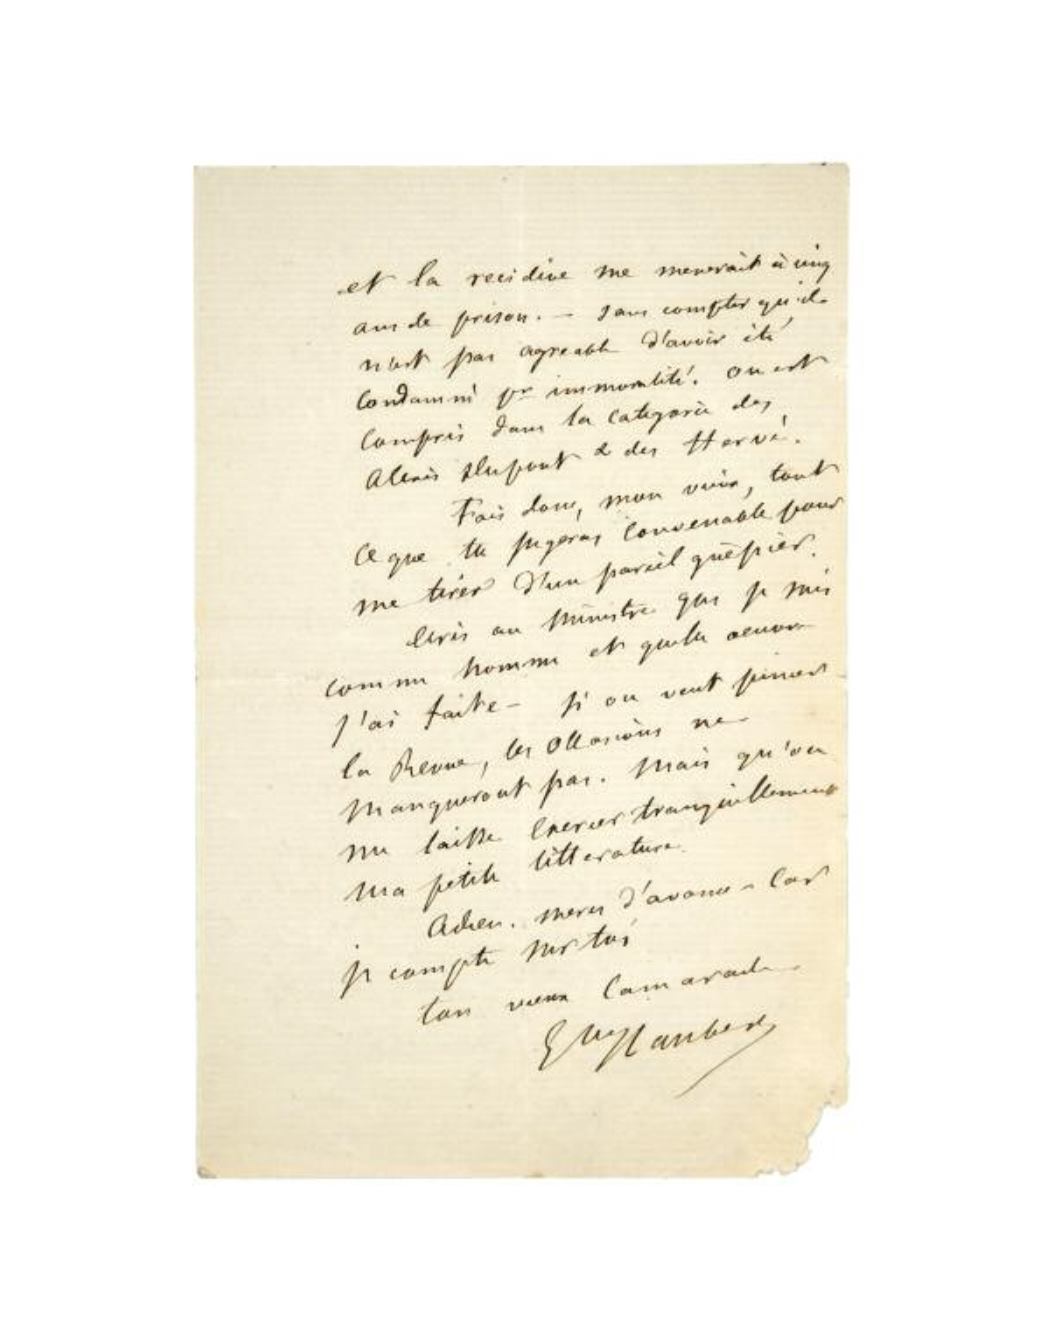 et la recidive me menerait à cinq
ans de prison. — sans compter qu'il
n'est pas agreable d'avoir été
condamné pr immoralité. On est
compris dans la categorie des
Alexis Dupont & des Hervé.
Fais donc, mon vieux, tout
ce que tu jugeras convenable pour
me tirer d'un pareil guêpier.
Ecris au Ministre que je suis
comme homme et quelle oeuvre
j'ai faite — si on veut pincer
la Revue, les occasions ne
manqueront pas. Mais qu'on
me laisse exercer tranquillement
ma petite litterature.
Adieu. merci d'avance — Car
je compte sur toi
ton vieux Camarade
Gve Flaubert